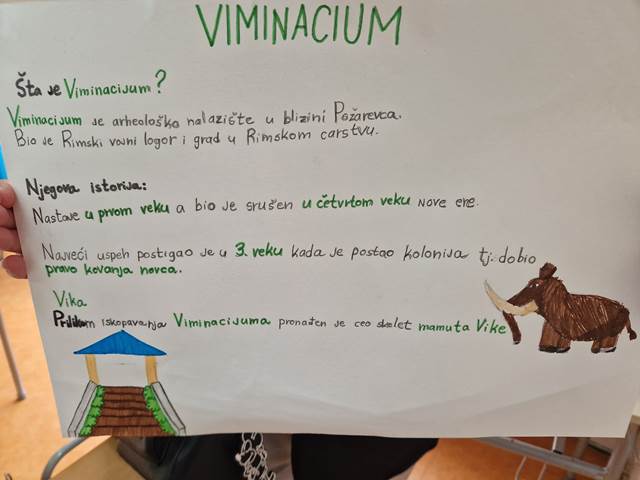 VIMINACIUM
Šta je Viminacijum?
Viminacijum je arheološko nalazište u blizini Požarevca.
Bio je Rimski vojni logor i grad u Rimskom carstvu.
Njegova istorija:
Nastaje u prvom veku a bio je srušen u četvrtom veku nove ere.
Najveći uspeh postigao je u 3. veku kada je postao kolonija tj. dobio
pravo kovanja novca.
Vika
Prilikom iskopavanja Viminacijuma pronađen je ceo skelet mamuta Vike